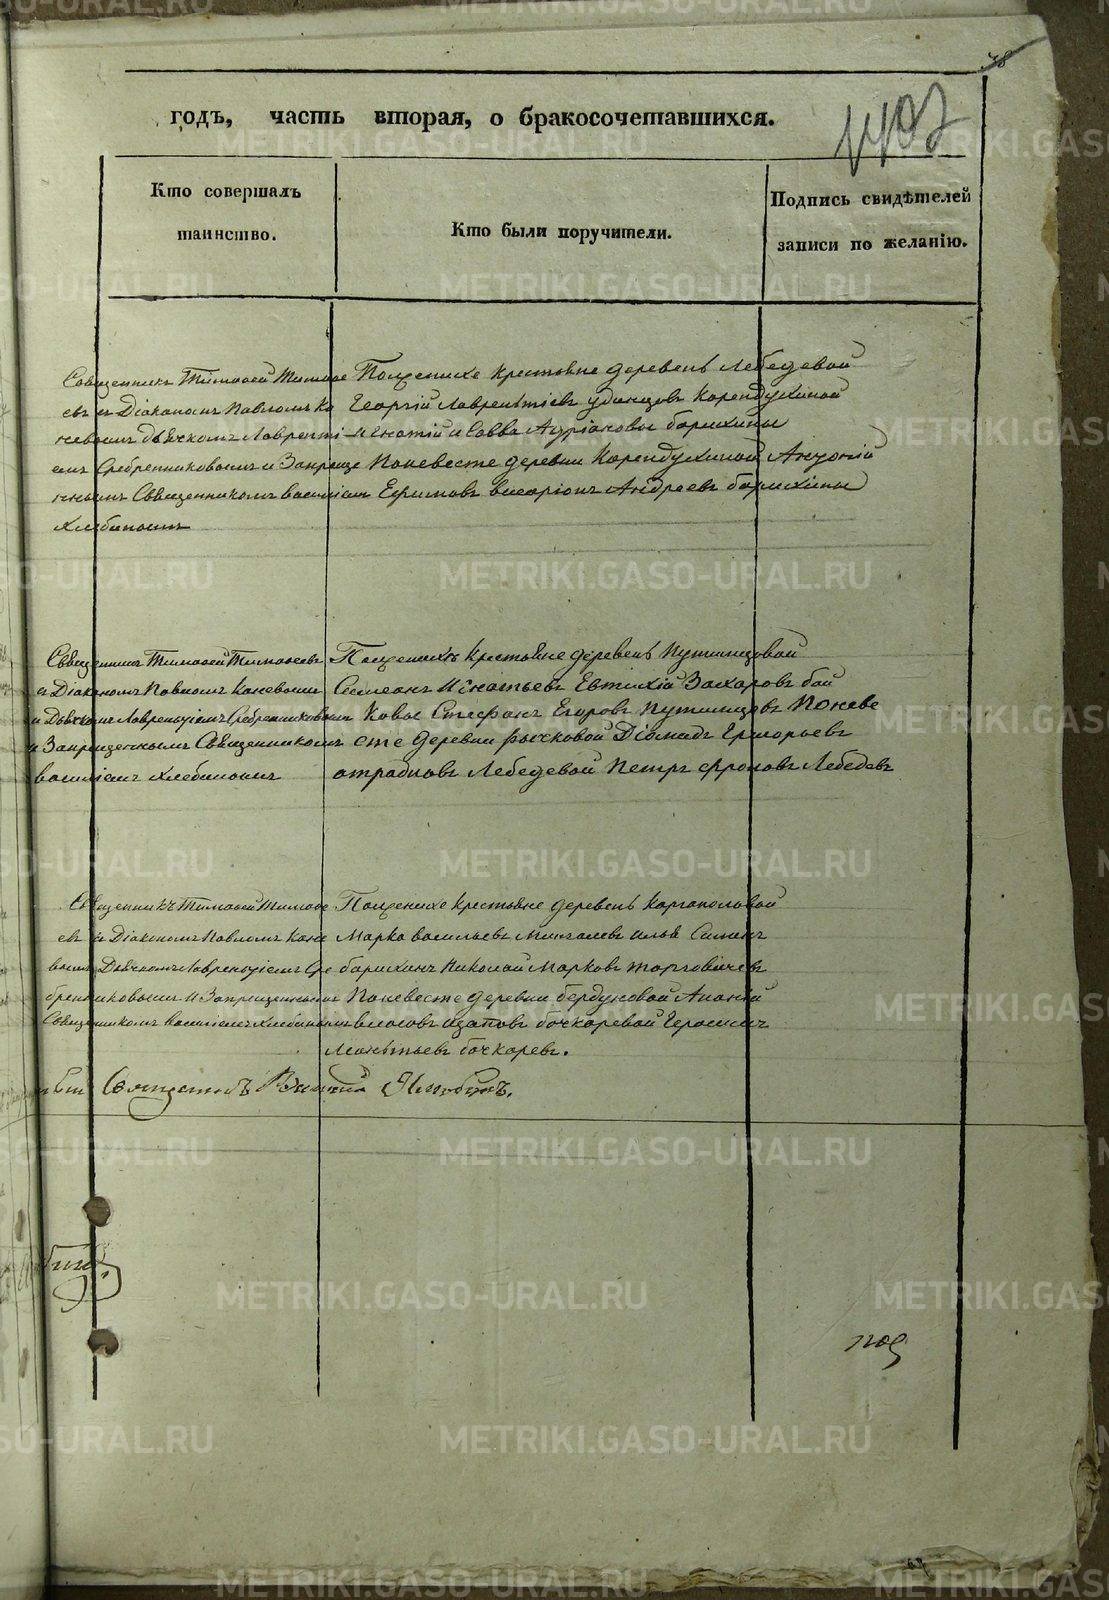 годъ, часть вторая, о бракосочетавшихся.
Кто совершалъ
таинство.
Кто были поручители.
Подпись свидѣтелей
записи по желанію.
Священникъ Тимофей Тимофе
евъ и Діаконъ Павломъ Ка
невымъ дьячкомъ Лавренті
емъ Сребренниковымъ и Запреще
ннымъ Священникомъ василіемъ
Хлебинымъ
По женихе крестьяне деревень Лебедевой
Георгій Лаврентіевъ удинцовъ Карендухиной
Игнатій и Савва Адріановы барихины
По невесте деревни Карендухиной Антоній
Ефимовъ висаріонъ Андреевъ барихины
Священникъ Тимофей Тимофеевъ
и Діакономъ Павломъ Каневымъ
и Дьячкомъ Лаврентіемъ Сребренниковымъ
и Запрещеннымъ Священникомъ
василіемъ Хлебинымъ
По женихѣ крестьяне деревень Путимцовой
Симеонъ Игнатьевъ Евтихій Захаровъ бай
ковы Стефанъ Егоровъ Путимцовъ По неве
сте деревни рычковой Діомидъ Григорьевъ
отрадновъ Лебедевой Петръ Фроловъ Лебедевъ
Священникъ Тимофей Тимофе
евъ и Діакономъ Павломъ Кане
вымъ Дьячкомъ Лаврентіемъ Сре
бренниковымъ и Запрещеннымъ
Священникомъ василіемъ Хлебинымъ
По женихе крестьяне деревень Каргаполовой
Марко васильевъ Минѣевъ
барихинъ Николай Марковъ
По невесте деревни бердуговой Ананій
власовъ бочкаревой Герасимъ
Леонтьевъ бочкаревъ.
Священникъ
METRIKI.GASO-URAL.RU